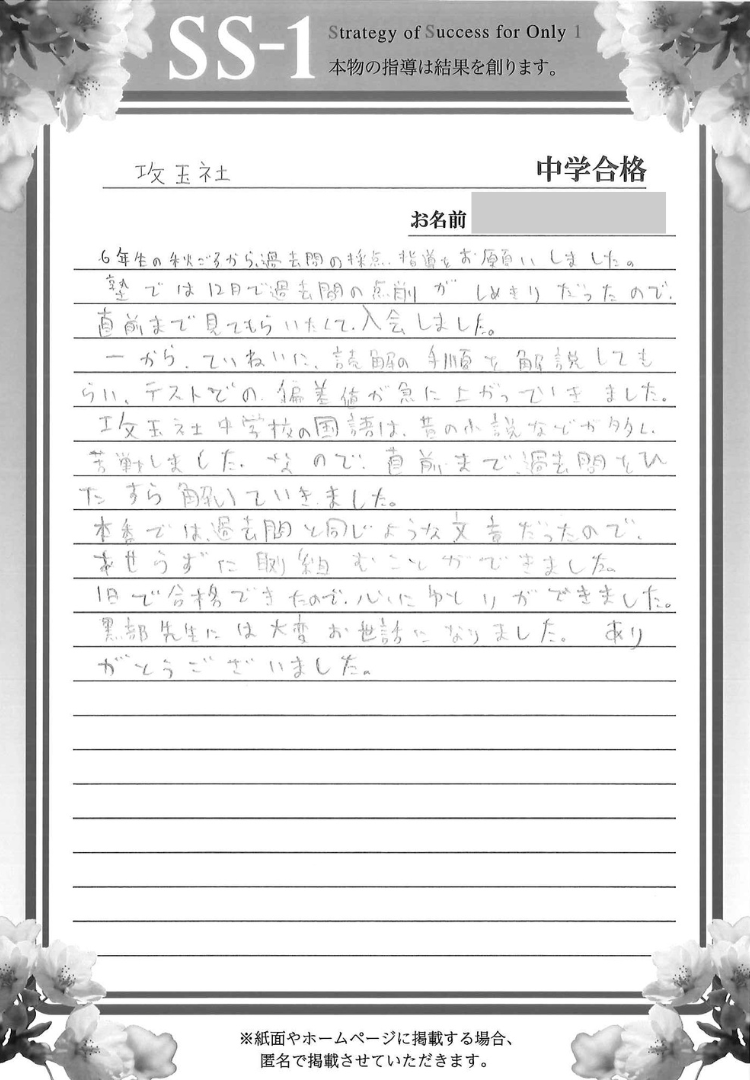 SS-1
Strategy of Success for Only 1
本物の指導は結果を創ります。
攻玉社
中学合格
お名前
6年生の秋ごろから、過去問の採点、指導をお願いしました。
塾では12月で過去問の点削がしめきりだったので、
直前まで見てもらいたくて、入会しました。
一から、ていねいに、読解の手順を解説しても
らい、テストでの偏差値が急に上がっていきました。
攻玉社中学校の国語は、昔の小説などが多く、
苦戦しました。なので、直前まで、過去問をひ
たすら解いていきました。
本番では、過去問と同じような文章だったので、
あせらずに取り組むことができました。
1日で合格できたので、心にゆとりができました。
黒部先生には大変お世話になりました。 あり
がとうございました。
※紙面やホームページに掲載する場合、
匿名で掲載させていただきます。